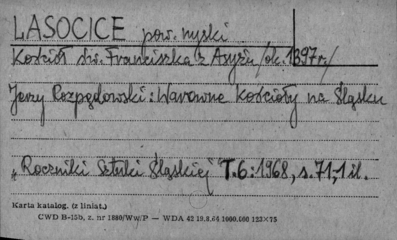 LASOCICE pow. nyski
Kościół św. Franciszka z Asyżu /ok. 1397 r./
Jerzy Rozpędowski: Warowne kościoły na Śląsku
„Roczniki Sztuki Śląskiej” T. 6: 1968, s. 71, 1 il.
Karta katalog. (z liniat.)
CWD B-15b, z. nr 1880/Ww/P — WDA 42 19.8.64 1000.000 123×75